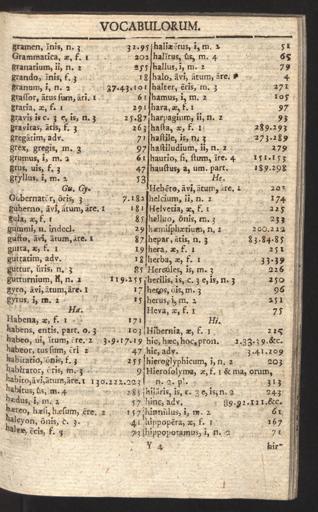 VOCABULORUM.
gramen, ĭnis, n. 3 32.95
Grammatica, æ, f. 1 202
granarium, ii, n. 2 255
grando, ĭnis, f. 3 18
granum, i, n. 2 37.43.101
grassor, ātus sum, āri. 1 61
gratia, æ, f. 1 291
gravis is c. 3 e, is, n. 3 25.87
gravitas, ātis, f. 3 263
gregātim, adv. 71
grex, gregis, m. 3 97
grumus, i, m. 2 61
grus, uis, f. 3 47
gryllus, i, m. 2 53
Gu. Gy.
Gubernator, ōris, 3 7.182
guberno, āvi, ātum, āre. 1 181
gula, æ, f. 1 85
gummi, n. indecl. 29
gusto, āvi, ātum, āre. 1 87
gutta, æ, f. 1 19
guttatim, adv. 18
guttur, ŭris, n. 3 85
gutturnium, ii, n. 2 119.255
gyro, āvi, ātum, āre. 1 17
gyrus, i, m. 2 15
Ha.
Habena, æ, f. 1 171
habens, entis, part. o. 3 103
habeo, ui, ĭtum, ēre. 2 3.9.17.19
habeor, tus sum, ēri 2 47
habitatio, ōnis, f. 3 255
habitator, ōris, m. 3 9
habito, āvi, ātum, āre. 1 130.222.223
habitus, ūs, m. 4 285
hædus, i, m. 2 57
hæreo, hæsi, hæsum, ēre. 2 157
halcyon, ŏnis, c. 3. 41
halex, ēcis, f. 3 73
haliæĕtus, i, m. 2 51
halĭtus, ūs, m. 4 65
hallus, i, m. 2 79
halo, āvi, ātum, āre. 4
halter, ēris, m. 3 271
hamus, i, m. 2 105
hara, æ, f. 1 97
harpagium, ii, n. 2 93
hasta, æ, f. 1 289.293
hastile, is, n. 3 273.289
hastiludium, ii, n. 2 279
haurio, si, stum, ire. 4 151.155
haustus, a, um. part. 189.298
He.
Hebĕto, āvi, ātum, āre. 1 203
helcium, ii, n. 2 174
Helvetia, æ, f. 1 225
helluo, ōnis, m. 3 233
hæmisphærium, n. 2 200.212
hepar, ătis, n. 3 83.84.85
hera, æ, f. 1 251
herba, æ, f. 1 33.39
Hercŭles, is, m. 3 226
herilis, is, c. 3 e, is, n. 3 250
heros, ōis, m. 3 96
herus, i, m. 2 251
Heva, æ, f. 1 75
Hi.
Hibernia, æ, f. 1 225
hic, hæc, hoc, pron. 2.33.39.&c.
hic, adv. 3.41.209
hieroglyphicum, i, n. 2 203
Hierosolyma, æ, f. 1 & ma, orum,
n. 2. pl. 313
hilăris, is, c. 3 e, is, n. 2 243
hinc, adv. 89.92.121.&c.
hinnulus, i, m. 2 61
hippopĕra, æ, f. 1 167
hippopotamus, i, n. 2 71
Y 4
hir-